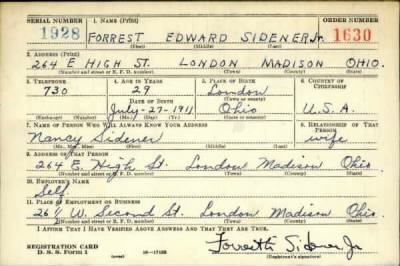 SERIAL NUMBER 1. NAME (Print) ORDER NUMBER
1928 FORREST EDWARD SIDENER Jr. 1630
(First) (Middle) (Last)
2. ADDRESS (Print)
264 E HIGH ST. LONDON MADISON OHIO.
(Number and street or R. F. D. number) (Town) (County) (State)
3. TELEPHONE 4. AGE IN YEARS 5. PLACE OF BIRTH 6. COUNTRY OF CITIZENSHIP
730 29 London
DATE OF BIRTH (Town or county)
July-27-1911 Ohio U.S.A.
(Exchange) (Number) (Mo.) (Day) (Yr.) (State or country)
7. NAME OF PERSON WHO WILL ALWAYS KNOW YOUR ADDRESS 8. RELATIONSHIP OF THAT PERSON
Nancy Sidener wife
(Mr., Mrs., Miss) (First) (Middle) (Last)
9. ADDRESS OF THAT PERSON
264 E. High St. London Madison Ohio
(Number and street or R. F. D. number) (Town) (County) (State)
10. EMPLOYER'S NAME
Self.
11. PLACE OF EMPLOYMENT OR BUSINESS
W. Second St. London Madison Ohio.
(Number and street or R. F. D. number) (Town) (County) (State)
I AFFIRM THAT I HAVE VERIFIED ABOVE ANSWERS AND THAT THEY ARE TRUE.
REGISTRATION CARD
D. S. S. Form 1 Sidener Jr
(Registrant's signature)